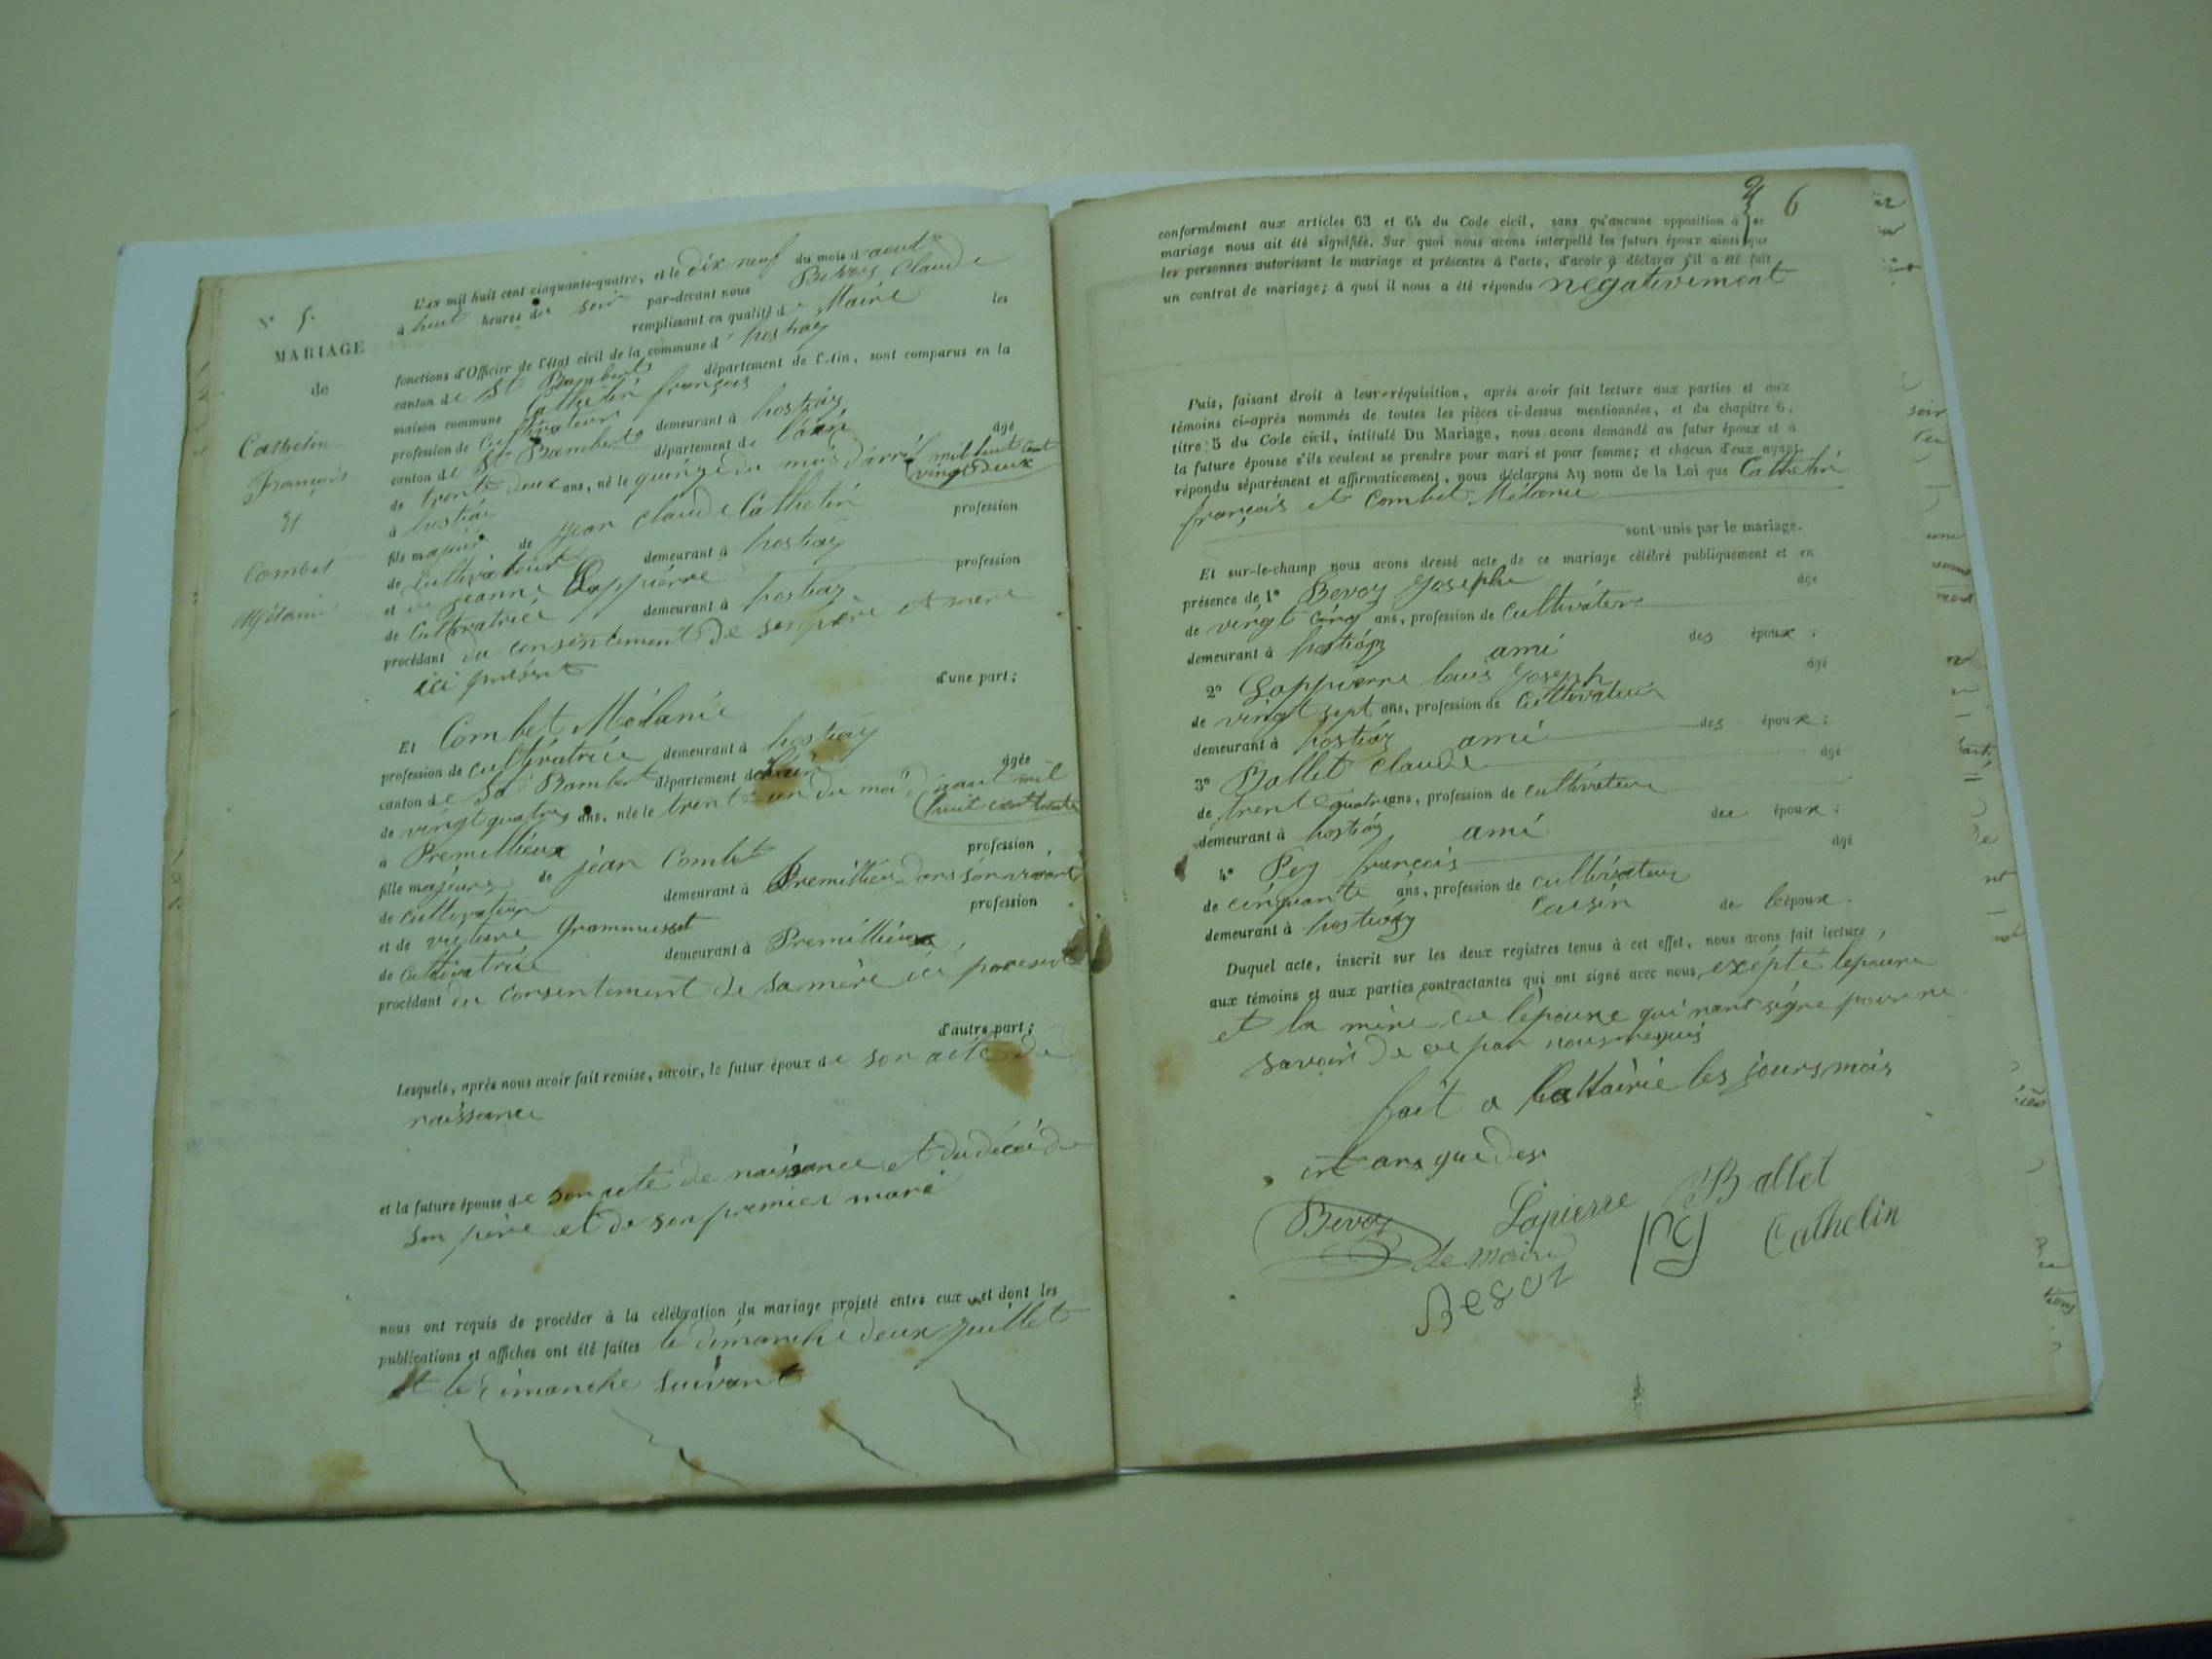 N° 5.
MARIAGE
de
Cathelin
François
Et
Combet
Mélanie
L'an mil huit cent cinquante-quatre, et le dix neuf du mois d'aout
à huit heures du soir par-devant nous Bevoz Claude
remplissant en qualité de Maire les
fonctions d'Officier de l'état civil de la commune d' hostiaz
canton de St Rambert département de l'Ain, sont comparus en la
maison commune Cathelin françois
profession de Cultivateur demeurant à hostiaz
canton de St Rambert département de l'ain âgé
de trente deux ans, né le quinze du mois d'avril mil huit cent
vingt deux
à hostiaz
fils majeur de jean Claude Cathelin profession
de Cultivateur demeurant à hostiaz
et de jeanne Lappierre profession
de Cultivatrice demeurant à hostiaz
procédant du consentement de ses père et mere
ici présent
d'une part;
Et Combet Mélanie
profession de cultivatrice demeurant à hostiaz
canton de St Rambert département de l'ain âgée
de vingt quatre ans, née le trente un du mois d'aout mil
huit cent trente
à Premillieux
fille majeure de jean Combet profession
de cultivateur demeurant à Premillieu dans son vivant
et de victoire Grammusset profession
de Cultivatrice demeurant à Premillieux
procédant du consentement de sa mère ici présente
d'autre part;
Lesquels, après nous avoir fait remise, savoir, le futur époux de son acte de
naissance
et la future épouse de son acte de naissance et du décé de
son père et de son premier mari
nous ont requis de procéder à la célébration du mariage projeté entre eux, et dont les
publications et affiches ont été faites le dimanche deux juillet
et le dimanche suivant
6
conformément aux articles 63 et 64 du Code civil, sans qu'aucune opposition à ce
mariage nous ait été signifiée. Sur quoi nous avons interpellé les futurs époux ainsi que
les personnes autorisant le mariage et présentes à l'acte, d'avoir à déclarer s'il a été fait
un contrat de mariage; à quoi il nous a été répondu négativement
Puis, faisant droit à leur réquisition, après avoir fait lecture aux parties et aux
témoins ci-après nommés de toutes les pièces ci-dessus mentionnées, et du chapitre 6,
titre 5 du Code civil, intitulé Du Mariage, nous avons demandé au futur époux et à
la future épouse s'ils veulent se prendre pour mari et pour femme; et chacun d'eux ayant
répondu séparément et affirmativement, nous déclarons Au nom de la Loi que Cathelin
françois et Combet Mélanie
sont unis par le mariage.
Et sur-le-champ nous avons dressé acte de ce mariage célébré publiquement et en
présence de 1° Bevoz Josephe âgé
de vingt cinq ans, profession de Cultivateur
demeurant à hostiaz ami des époux;
2° Lappierre louis Joseph âgé
de vingt sept ans, profession de Cultivateur
demeurant à hostiaz ami des époux;
3° Ballet Claude âgé
de trente quatre ans, profession de cultivateur
demeurant à hostiaz ami des époux;
4° Pey françois âgé
de cinquante ans, profession de cultivateur
demeurant à hostiaz Caisin de l'époux.
Duquel acte, inscrit sur les deux registres tenus à cet effet, nous avons fait lecture
aux témoins et aux parties contractantes qui ont signé avec nous, excepté lepouse
et la mère de l'épouse qui nont signé pour ne
savoir de ce par nous requis
fait a la Mairie les jours mois
et ans que des
Bevoz Lapierre Ballet
le maire Pey Cathelin
Besoz